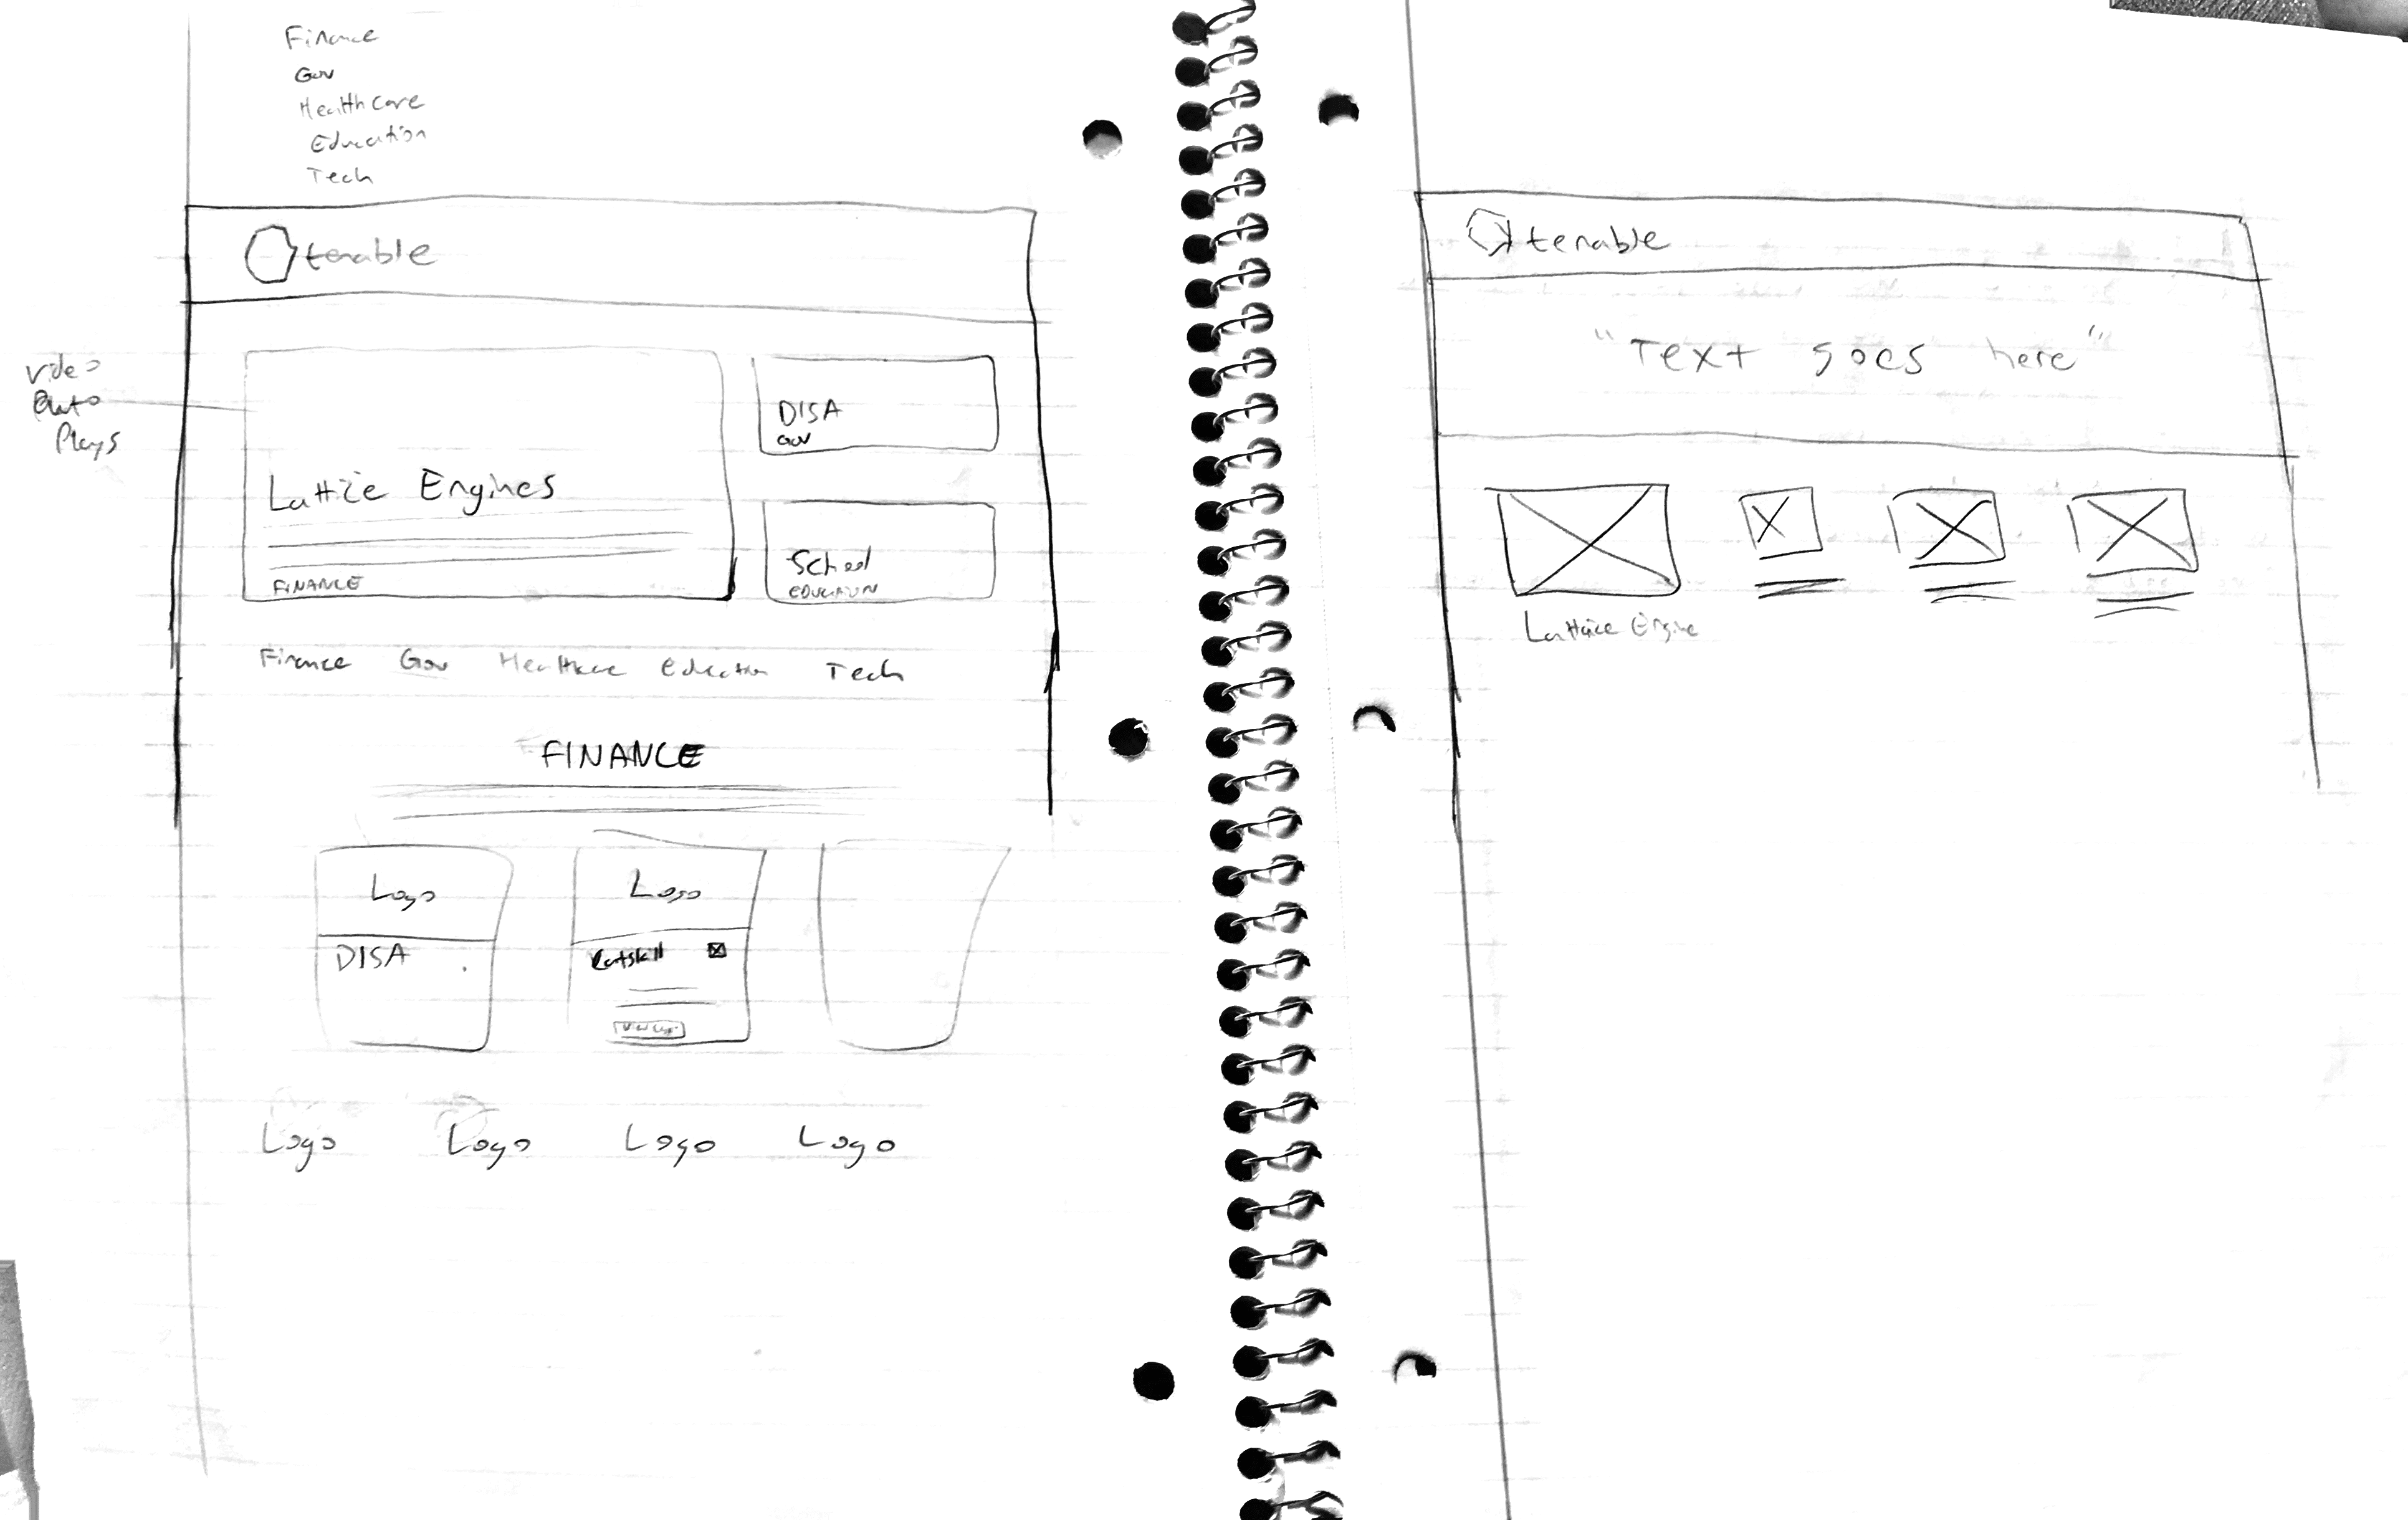 Finance
Gov
Healthcare
Education
Tech
tenable
video
auto
Plays
Lattice Engines
FINANCE
DISA
Gov
School
EDUCATION
Finance Gov Healthcare education Tech
FINANCE
Logo
DISA
Logo
Catskill
Logo Logo Logo Logo
tenable
"Text goes here"
Lattice Engine